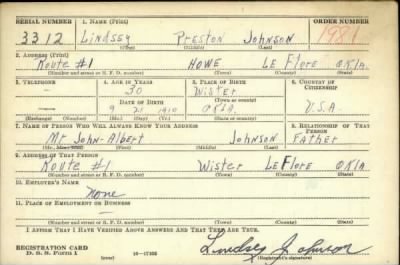 SERIAL NUMBER 1. NAME (Print) ORDER NUMBER
3312 Lindsey Preston Johnson 1981
(First) (Middle) (Last)
2. ADDRESS (Print)
Route #1 Howe Le Flore Okla
(Number and street or R. F. D. number) (Town) (County) (State)
3. TELEPHONE 4. AGE IN YEARS 5. PLACE OF BIRTH 6. COUNTRY OF CITIZENSHIP
— 30 Wister
DATE OF BIRTH
— 9 21 1910 Okla. U.S.A
(Exchange) (Number) (Mo.) (Day) (Yr.) (State or country)
7. NAME OF PERSON WHO WILL ALWAYS KNOW YOUR ADDRESS 8. RELATIONSHIP OF THAT PERSON
Mr John-Albert Johnson Father
(Mr., Mrs., Miss) (First) (Middle) (Last)
9. ADDRESS OF THAT PERSON
Route #1 Wister LeFlore Okla
(Number and street or R. F. D. number) (Town) (County) (State)
10. EMPLOYER'S NAME
None
11. PLACE OF EMPLOYMENT OR BUSINESS
—
(Number and street or R. F. D. number) (Town) (County) (State)
I AFFIRM THAT I HAVE VERIFIED ABOVE ANSWERS AND THAT THEY ARE TRUE.
REGISTRATION CARD
D. S. S. Form 1 (over) 16—17105 Lindsey Johnson
Registrant's signature.